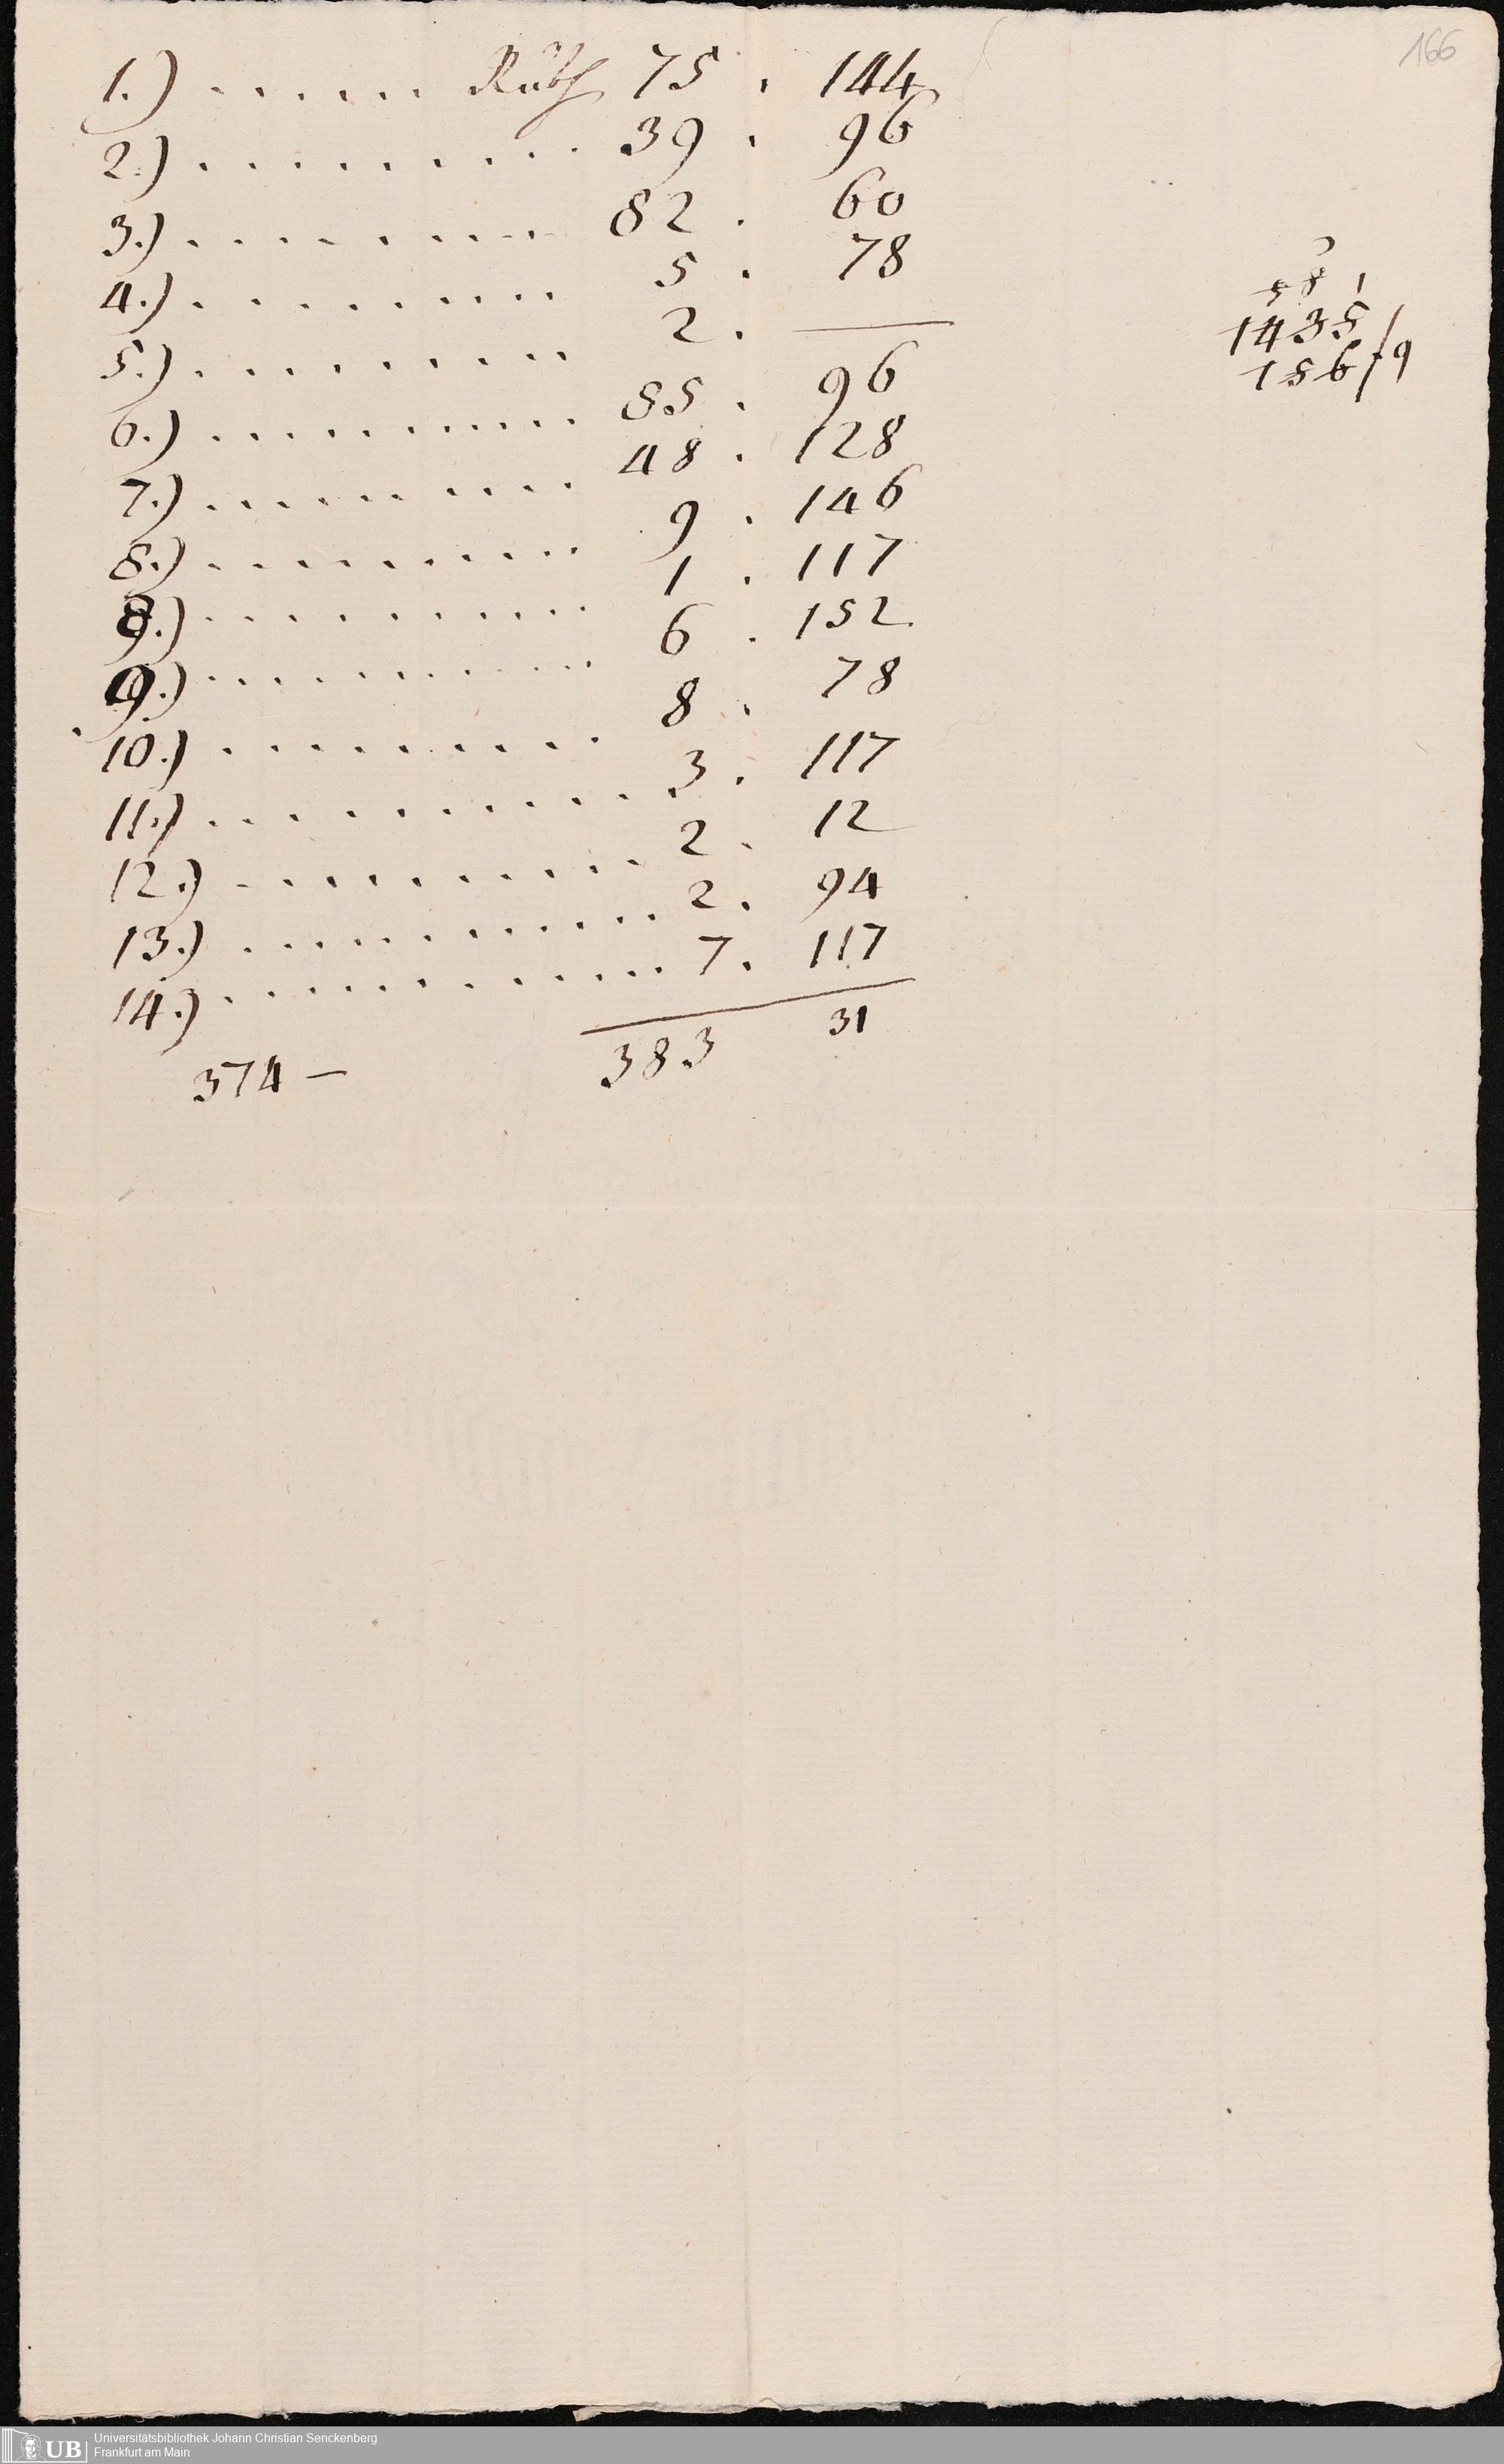 166
1.) . . . . . . Ruth 75 . 144
2.) . . . . . . . . . . 39 . 96
3.) . . . . . . . . . 82 . 60
4.) . . . . . . . . . . 5 . 78
5.) . . . . . . . . . 2 . —
6.) . . . . . . . . . . . . 85 . 96
7.) . . . . . . . . . . 48 . 128
8.) . . . . . . . . . . 9 . 146
9.) . . . . . . . . . . . 1 . 117
9.) . . . . . . . . . . . 6 . 152
10.) . . . . . . . . . . 8 . 78
11.) . . . . . . . . . . . 3 . 117
12.) . . . . . . . . . . 2 . 12
13.) . . . . . . . . . . . . 2 . 94
14.) . . . . . . . . . . . . 7 . 117
374 — 383 31
1435
156 / 9
UB Universitätsbibliothek Johann Christian Senckenberg
Frankfurt am Main